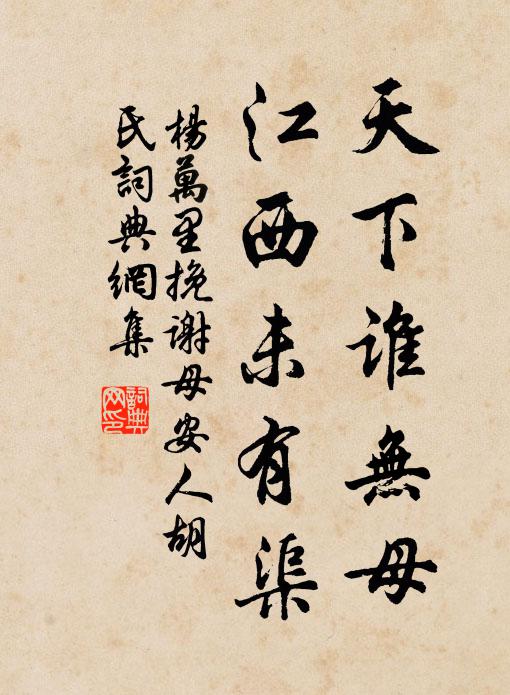 天下誰無母
江西未有渠
楊萬里挽謝母安人胡
氏詞典網集
詞典
网印